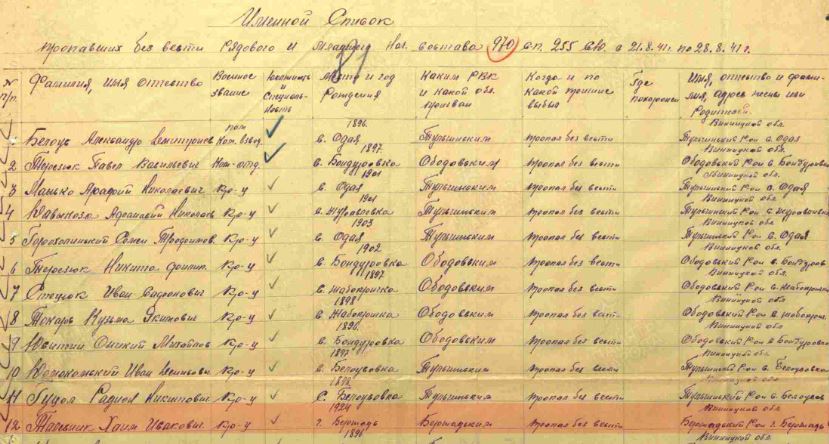 Именной Список
пропавших без вести рядового и младшего нач. состава 970 сп. 255 сд. с 21.8.41г. по 28.8.41г.
№ п/п. Фамилия, имя отчество Военное звание Должность и Специальность Место и год Рождения Каким РВК и какой обл. призван Когда и по какой причине выбыл Где похоронен Имя, отчество и фамилия, адрес жены или родителей
1896. Винницкой обл.
Белоус Александр пом Ком. взвод. с. Одая Тульчинским пропал без вести Тульчинский Рай с. Одая
1897. Винницкой обл.
2 Терезюк Павел Васильевич Ком-отд. с. Бондуровка Ободовским пропал без вести Ободовский Рай с. Бондуров
1901 Винницкой обл.
3 Манько Николаевич Кр-ц с. Одая Тульчинским пропал без вести Тульчинский Рай с. Одая
1901 Винницкой обл.
4 Афанасий Кр-ц Тульчинским пропал без вести Тульчинский Рай
1903 Винницкой обл.
5 Семен Трофимов. Кр-ц с. Одая Тульчинским пропал без вести Тульчинский Рай с. Одая
1902. Винницкой обл.
6 Терезюк Никита Филип. Кр-ц с. Бондуровка Ободовским пропал без вести Ободовский Рай с. Бондуров
1897. Винницкой обл.
7 Иван Кр-ц с. Жабокричка Ободовским пропал без вести Ободовский Рай
1898. Винницкой обл.
8 Токарь Кузьма Якимович Кр-ц с. Жабокричка Ободовским пропал без вести Ободовский Рай
1896. Винницкой обл.
9 Михайлов Кр-ц с. Бондуровка Ободовским пропал без вести Ободовский Рай с. Бондуровка
1897. Винницкой обл.
10 Иван Кр-ц с. Белоусовка Тульчинским пропал без вести Тульчинский Рай с. Белоусовка
11 Радион Никитович Кр-ц с. Белоусовка Тульчинским пропал без вести Тульчинский Рай с. Белоусов
1924 Винницкой обл.
12 Хаим Исакович Кр-ц г. Бершадь Бершадским пропал без вести Бершадский Рай г. Бершадь
1896 Винницкой обл.